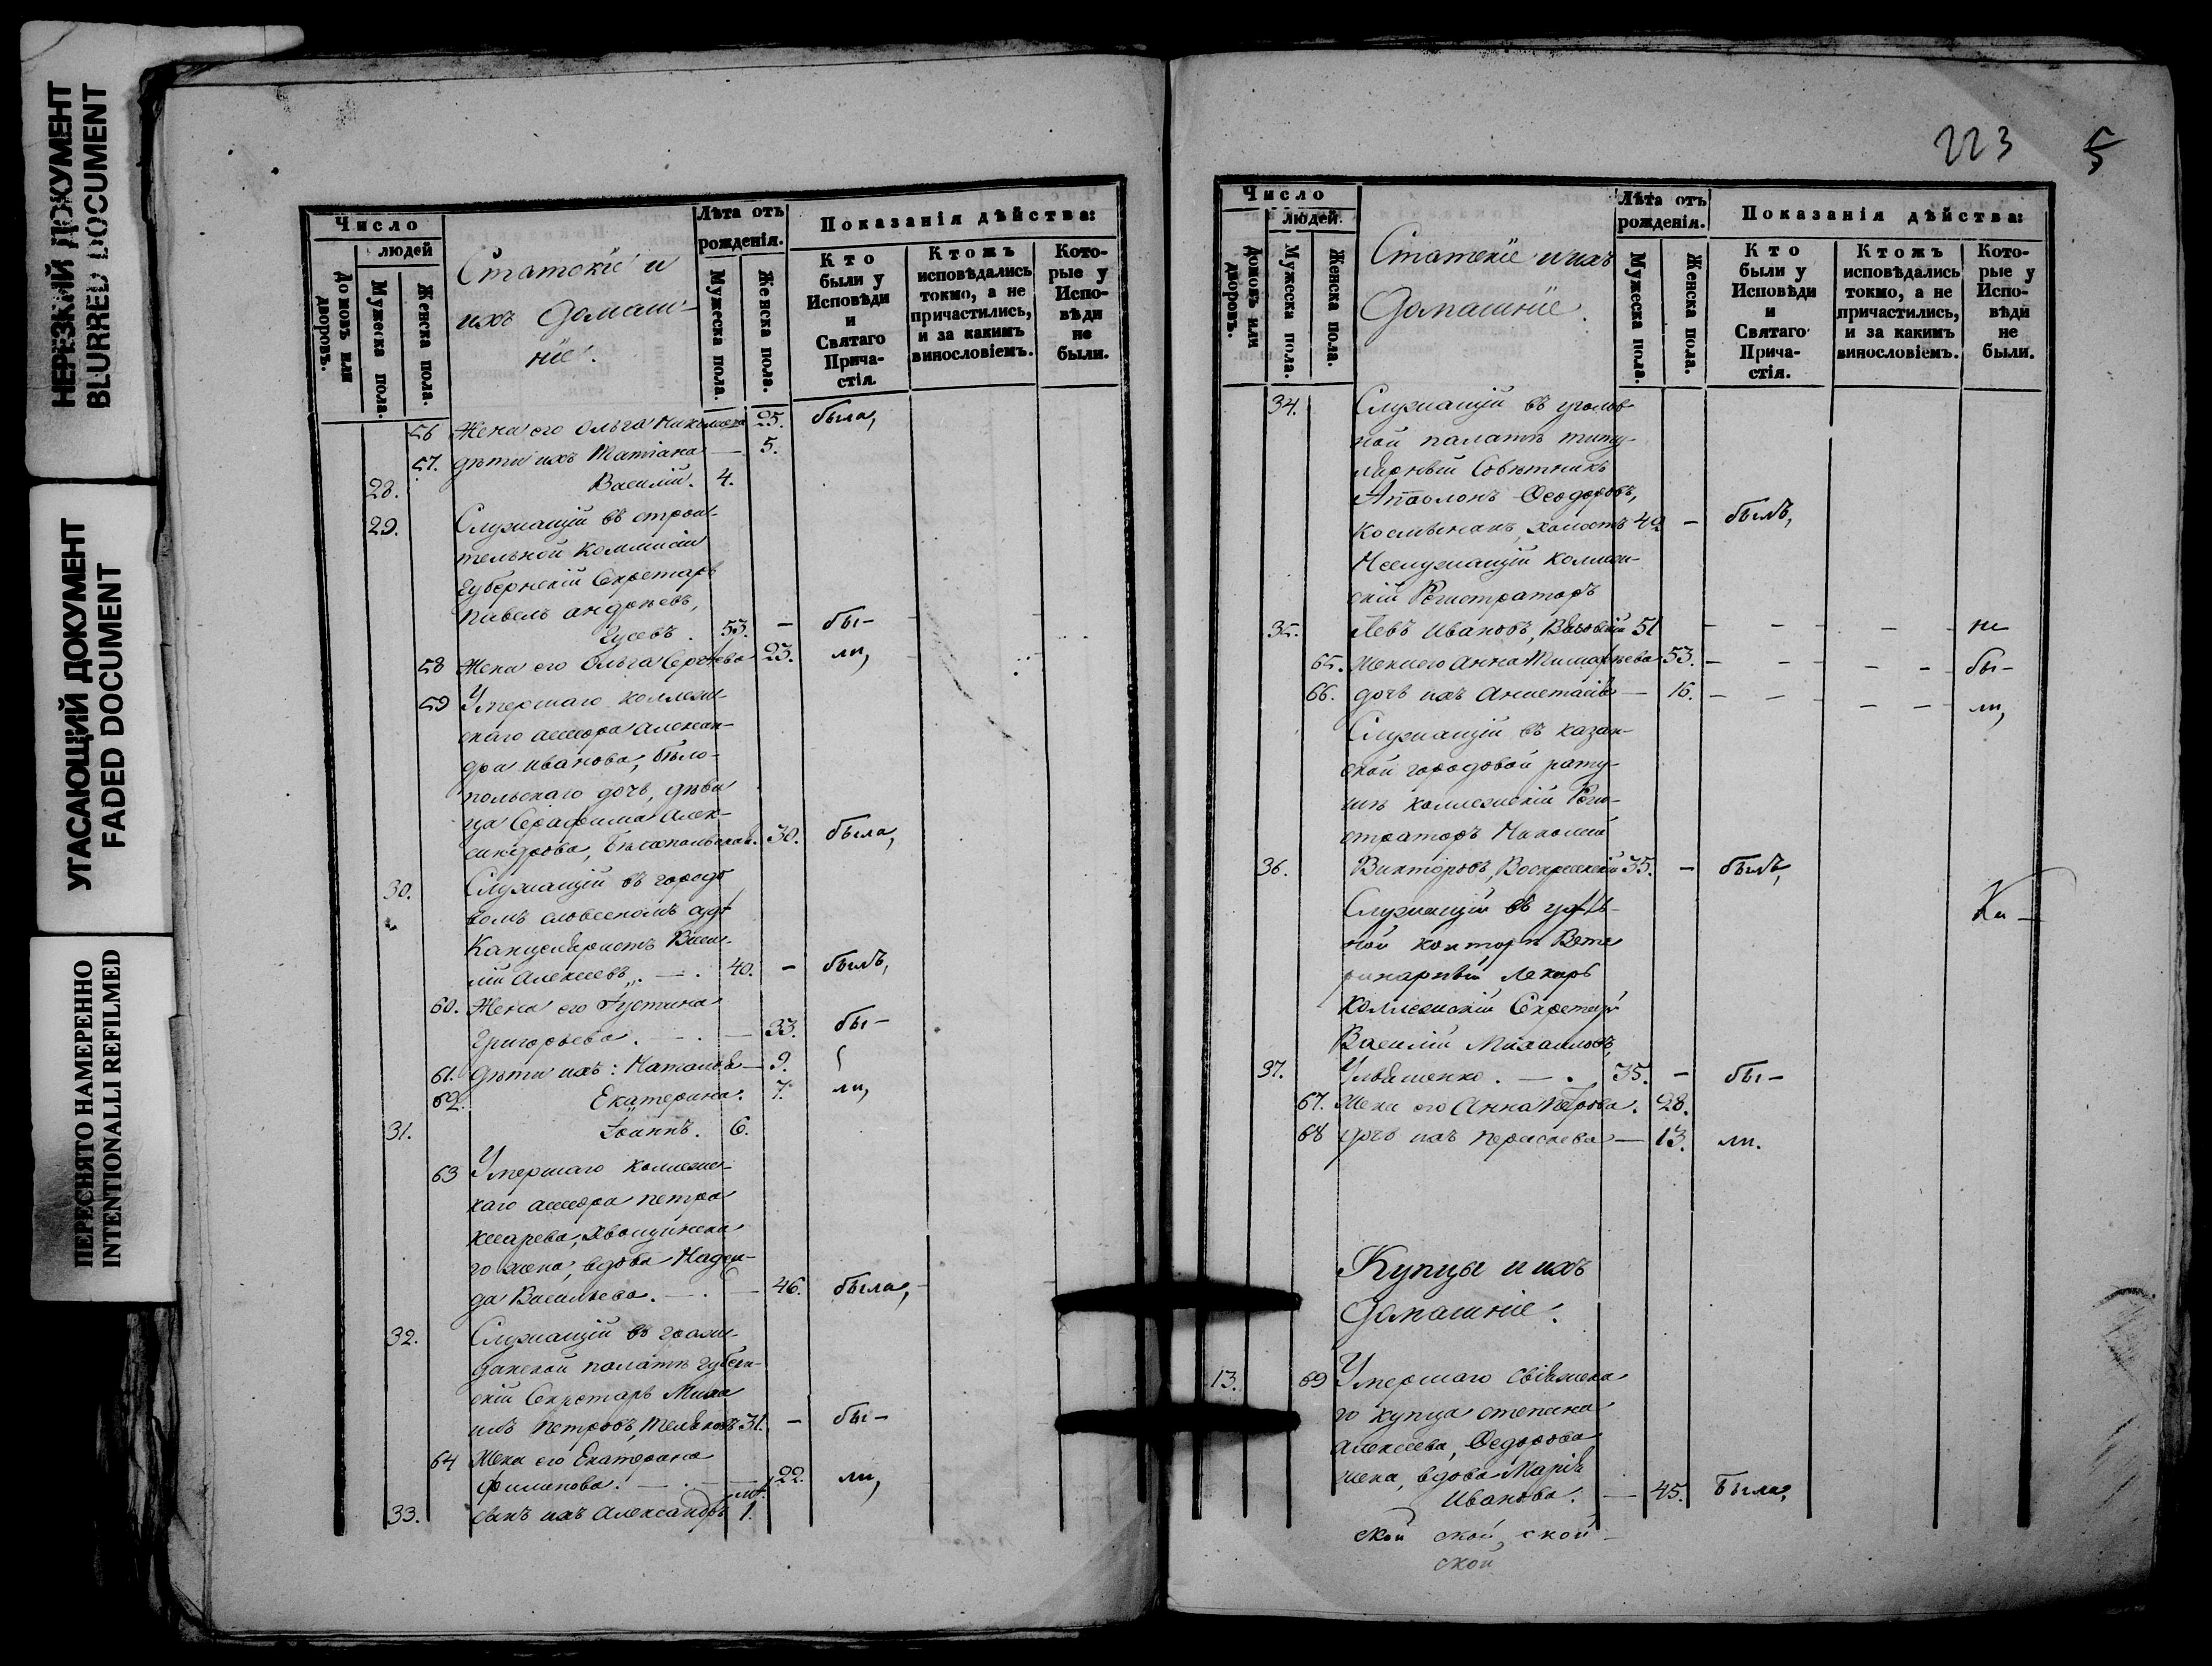 НЕРЕЗКИЙ ДОКУМЕНТ
BLURRED DOCUMENT
УГАСАЮЩИЙ ДОКУМЕНТ
FADED DOCUMENT
ПЕРЕСНЯТО НАМЕРЕННО
INTENTIONALLI REFILMED
Число
людей
Домовъ или дворовъ.
Мужеска пола.
Женска пола.
Статскіе и
ихъ домаш-
ніе.
Лѣта отъ рожденія.
Мужеска пола.
Женска пола.
Показанія дѣйства:
Кто были у Исповѣди и Святаго Прича-стія.
Ктожъ исповѣдались токмо, а не причастились, и за какимъ винословіемъ.
Кото-рые у Испо-вѣди не были.
56 Жена его Ольга Николаева 25. была,
57. дѣти ихъ Татіана — 5.
28. Василій. 4.
29. Служащій въ строи-
тельной коммисіи
Губернскій Секретарь
Павелъ Андреевъ,
Гусевъ. 53. — бы-
58 Жена его Ольга Сергѣева 23. ли,
59 Умершаго коллеж-
скаго ассесора Алексан-
дра Иванова, Бѣло-
польскаго дочь, дѣви
ца Серафима Алек-
сандрова, Бѣлопольская. 30. была,
30. Служащій въ городо
вомъ словесномъ судѣ
Канцеляристъ Васи-
лій Алексеевъ. — 40. — былъ,
60. Жена его Густина
Григорьева. — 33. бы-
61. дѣти ихъ: Наталья — 9.
62. Екатерина. 7. ли,
31. Іоаннъ. 6.
63 Умершаго коллежс-
каго ассесора Петра
Кесарева, Хвощинска
го жена, вдова Надеж-
да Васильева. — 46. была,
32. Служащій въ граж-
данской палатѣ губерн-
скій Секретарь Миха
илъ Петровъ, 31. — бы-
64 Жена его Екатерина
Филипова. — 22. ли,
33. сынъ ихъ Александръ 1.
223 5
Число
людей.
Домовъ или дворовъ.
Мужеска пола.
Женска пола.
Статскіе и ихъ
домашніе.
Лѣта отъ рожденія.
Мужеска пола.
Женска пола.
Показанія дѣйства:
Кто были у Исповѣди и Святаго Прича-стія.
Ктожъ исповѣдались токмо, а не причастились, и за какимъ винословіемъ.
Кото-рые у Испо-вѣди не были.
34. Служащій въ уголов-
ной палатѣ титу-
лярный Совѣтникъ
Апполонъ Ѳеодоровъ,
холостъ 40. — былъ,
Неслужащій коллеж-
скій Регистраторъ
35. Левъ Ивановъ, 51 — — — — не
65. Жена его Анна Тимофѣева 53. — — — — — бы-
66. дочь ихъ Анастасія — 16. — — — — ли,
Служащій въ казан-
ской городовой рату-
шѣ коллежскій Реги-
страторъ Николай
36. Викторовъ, Воскресенскій 35. — былъ,
Служащій въ
ной конторѣ Вете
ринарный Лекарь
коллежскій Секретарь
Василій Михайловъ,
37. Ульяшенко. — 35. — бы-
67. Жена его Анна Петрова. 28.
68 дочь ихъ — 13. ли.
Купцы и ихъ
домашніе.
13. 69 Умершаго Свіяжска
го купца Степана
Алексеева, Ѳедорова
жена, вдова Марія
Иванова. — 45. была,
ской ской, ской
ской